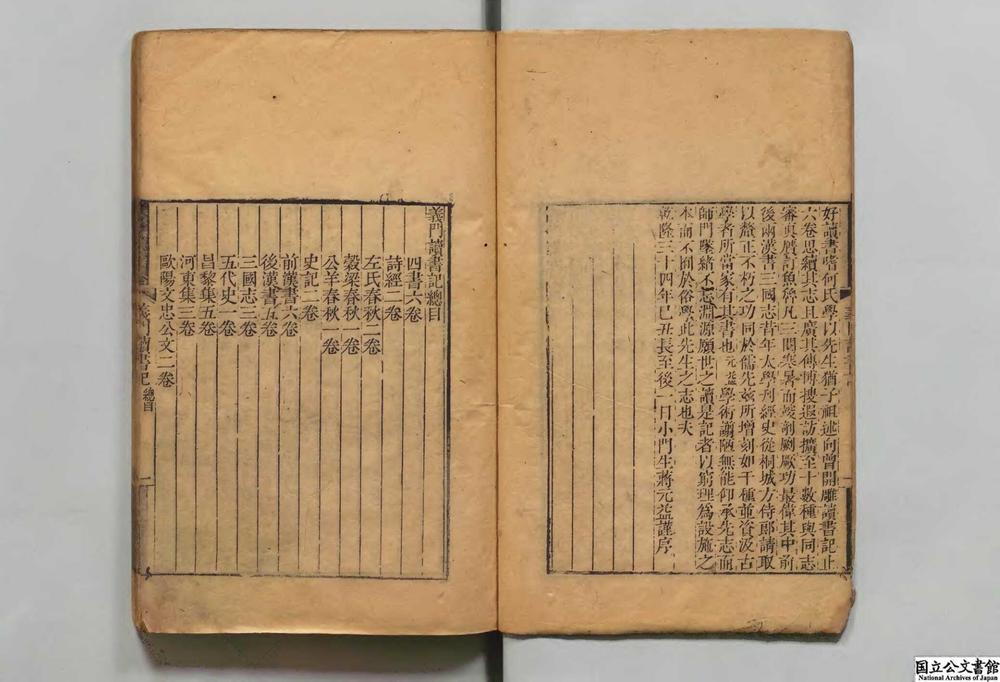 好讀書嗜何氏學以先生猶子祖述向曾開雕讀書記止
六卷思續其志且廣其傳博搜遐訪擴至十數種與同志
審眞贗訂魚魯凡三閱寒暑而竣剞劂厥功最偉其中前
後兩漢書三國志昔年太學刋經史從桐城方侍郎請取
以釐正不朽之功同於儒先玆所增刻如干種並資汲古
學者所當家有其書也元益學術譾陋無能仰承先志而
師門墜緒不忘淵源願世之讀是記者以窮理爲設施之
本而不囿於俗學此先生之志也夫
乾隆三十四年已丑長至後一日小門生蔣元益謹序
義門讀書記總目
四書六卷
詩經二卷
左氏春秋二卷
穀梁春秋一卷
公羊春秋一卷
史記二卷
前漢書六卷
後漢書五卷
三國志三卷
五代史一卷
昌黎集五卷
河東集三卷
歐陽文忠公文二卷
義門讀書記 總目 一
国立公文書館
National Archives of Japan